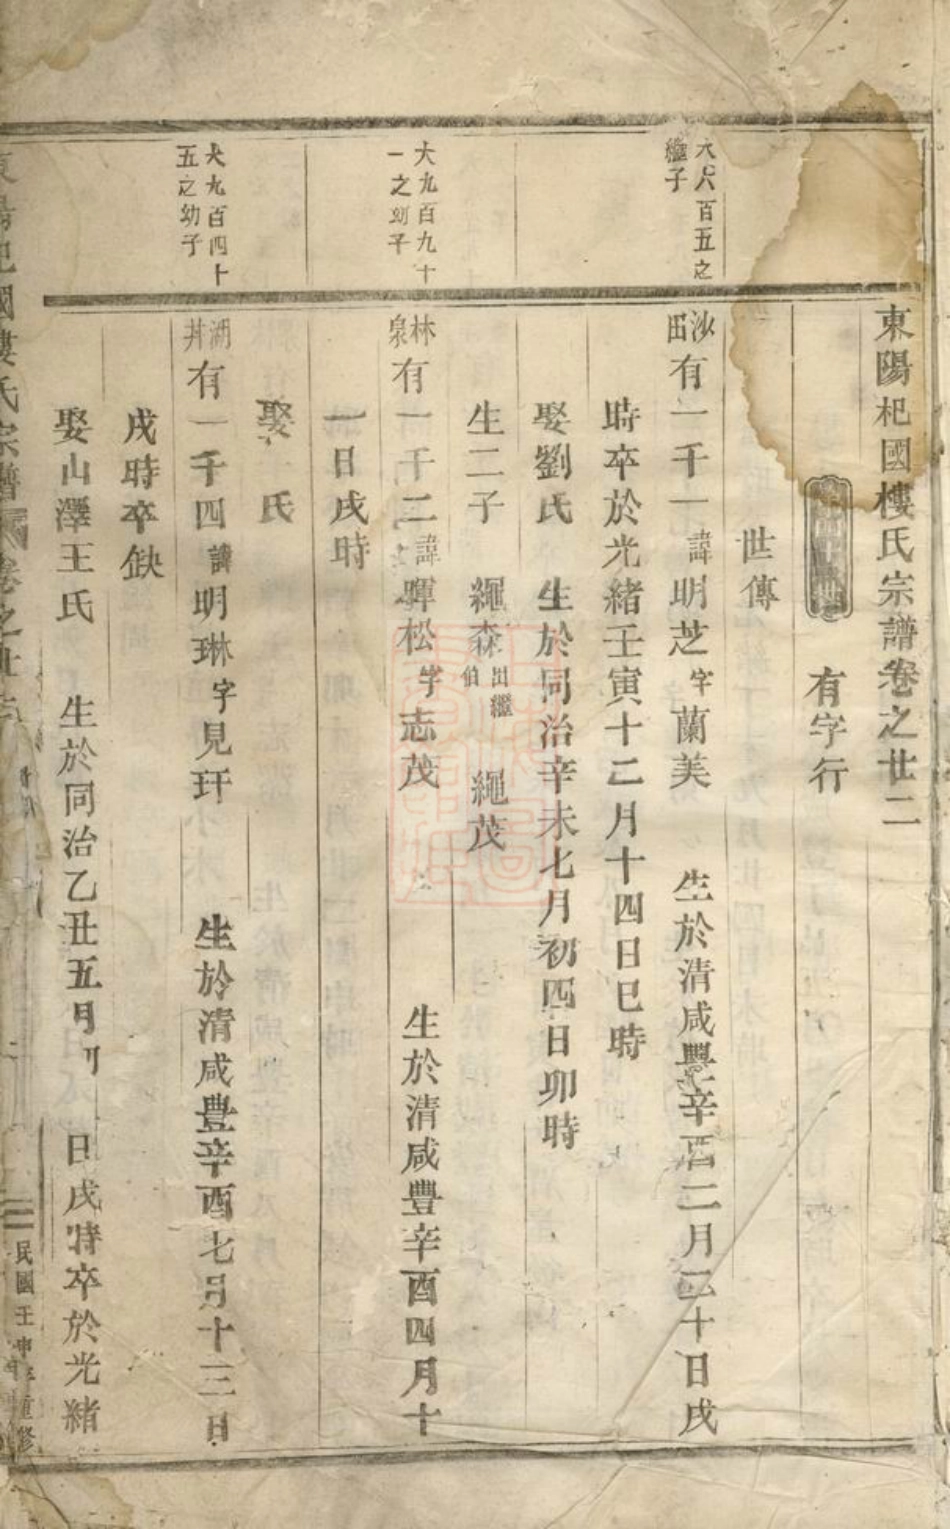 東陽杞國樓氏宗譜卷之廿二
有字行
世傳
大八百五之
繼子
沙田 有一千一 諱 明芝 字 蘭美 生於清咸豐辛酉二月三十日戌
時卒於光緒壬寅十二月十四日巳時
娶劉氏 生於同治辛未七月初四日卯時
生二子 繩森 出繼伯 繩茂
大九百九十
一之幼子
林泉 有一千二 諱 暉松 字 志茂 生於清咸豐辛酉四月十
一日戌時
娶 氏
大九百四十
五之幼子
湖井 有一千四 諱 明琳 字 見玕 生於清咸豐辛酉七月十三日
戌時卒缺
娶山澤王氏 生於同治乙丑五月 日戌時卒於光緒
東陽杞國樓氏宗譜 卷之廿二
民國壬申年重修